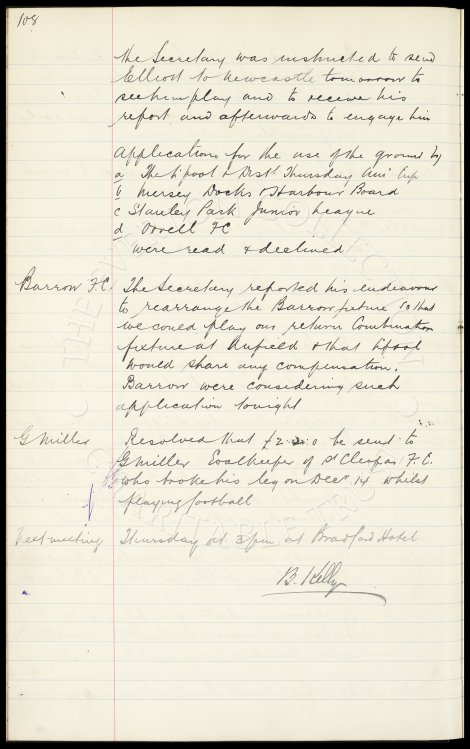 108
the Secretary was instructed to send
Elliott to Newcastle tomorrow to
see him play and to receive his
report and afterwards to engage him
Applications for the use of the ground by
a The L'pool & Dist Thursday Cup
b Mersey Docks & Harbour Board
c Stanley Park Junior League
d Orrell FC
were read & declined
Barrow FC The Secretary reported his endeavour
to rearrange the Barrow fixture so that
we could play our return Combination
fixture at Anfield & that Lpool
would share any compensation.
Barrow were considering such
application tonight
G Miller Resolved that £2.2.0 be sent to
G Miller Goalkeeper of St Cleopas F.C.
who broke his leg on Decr 14 whilst
playing football
Next meeting Thursday at 3pm at Bradford Hotel
B. Kelly